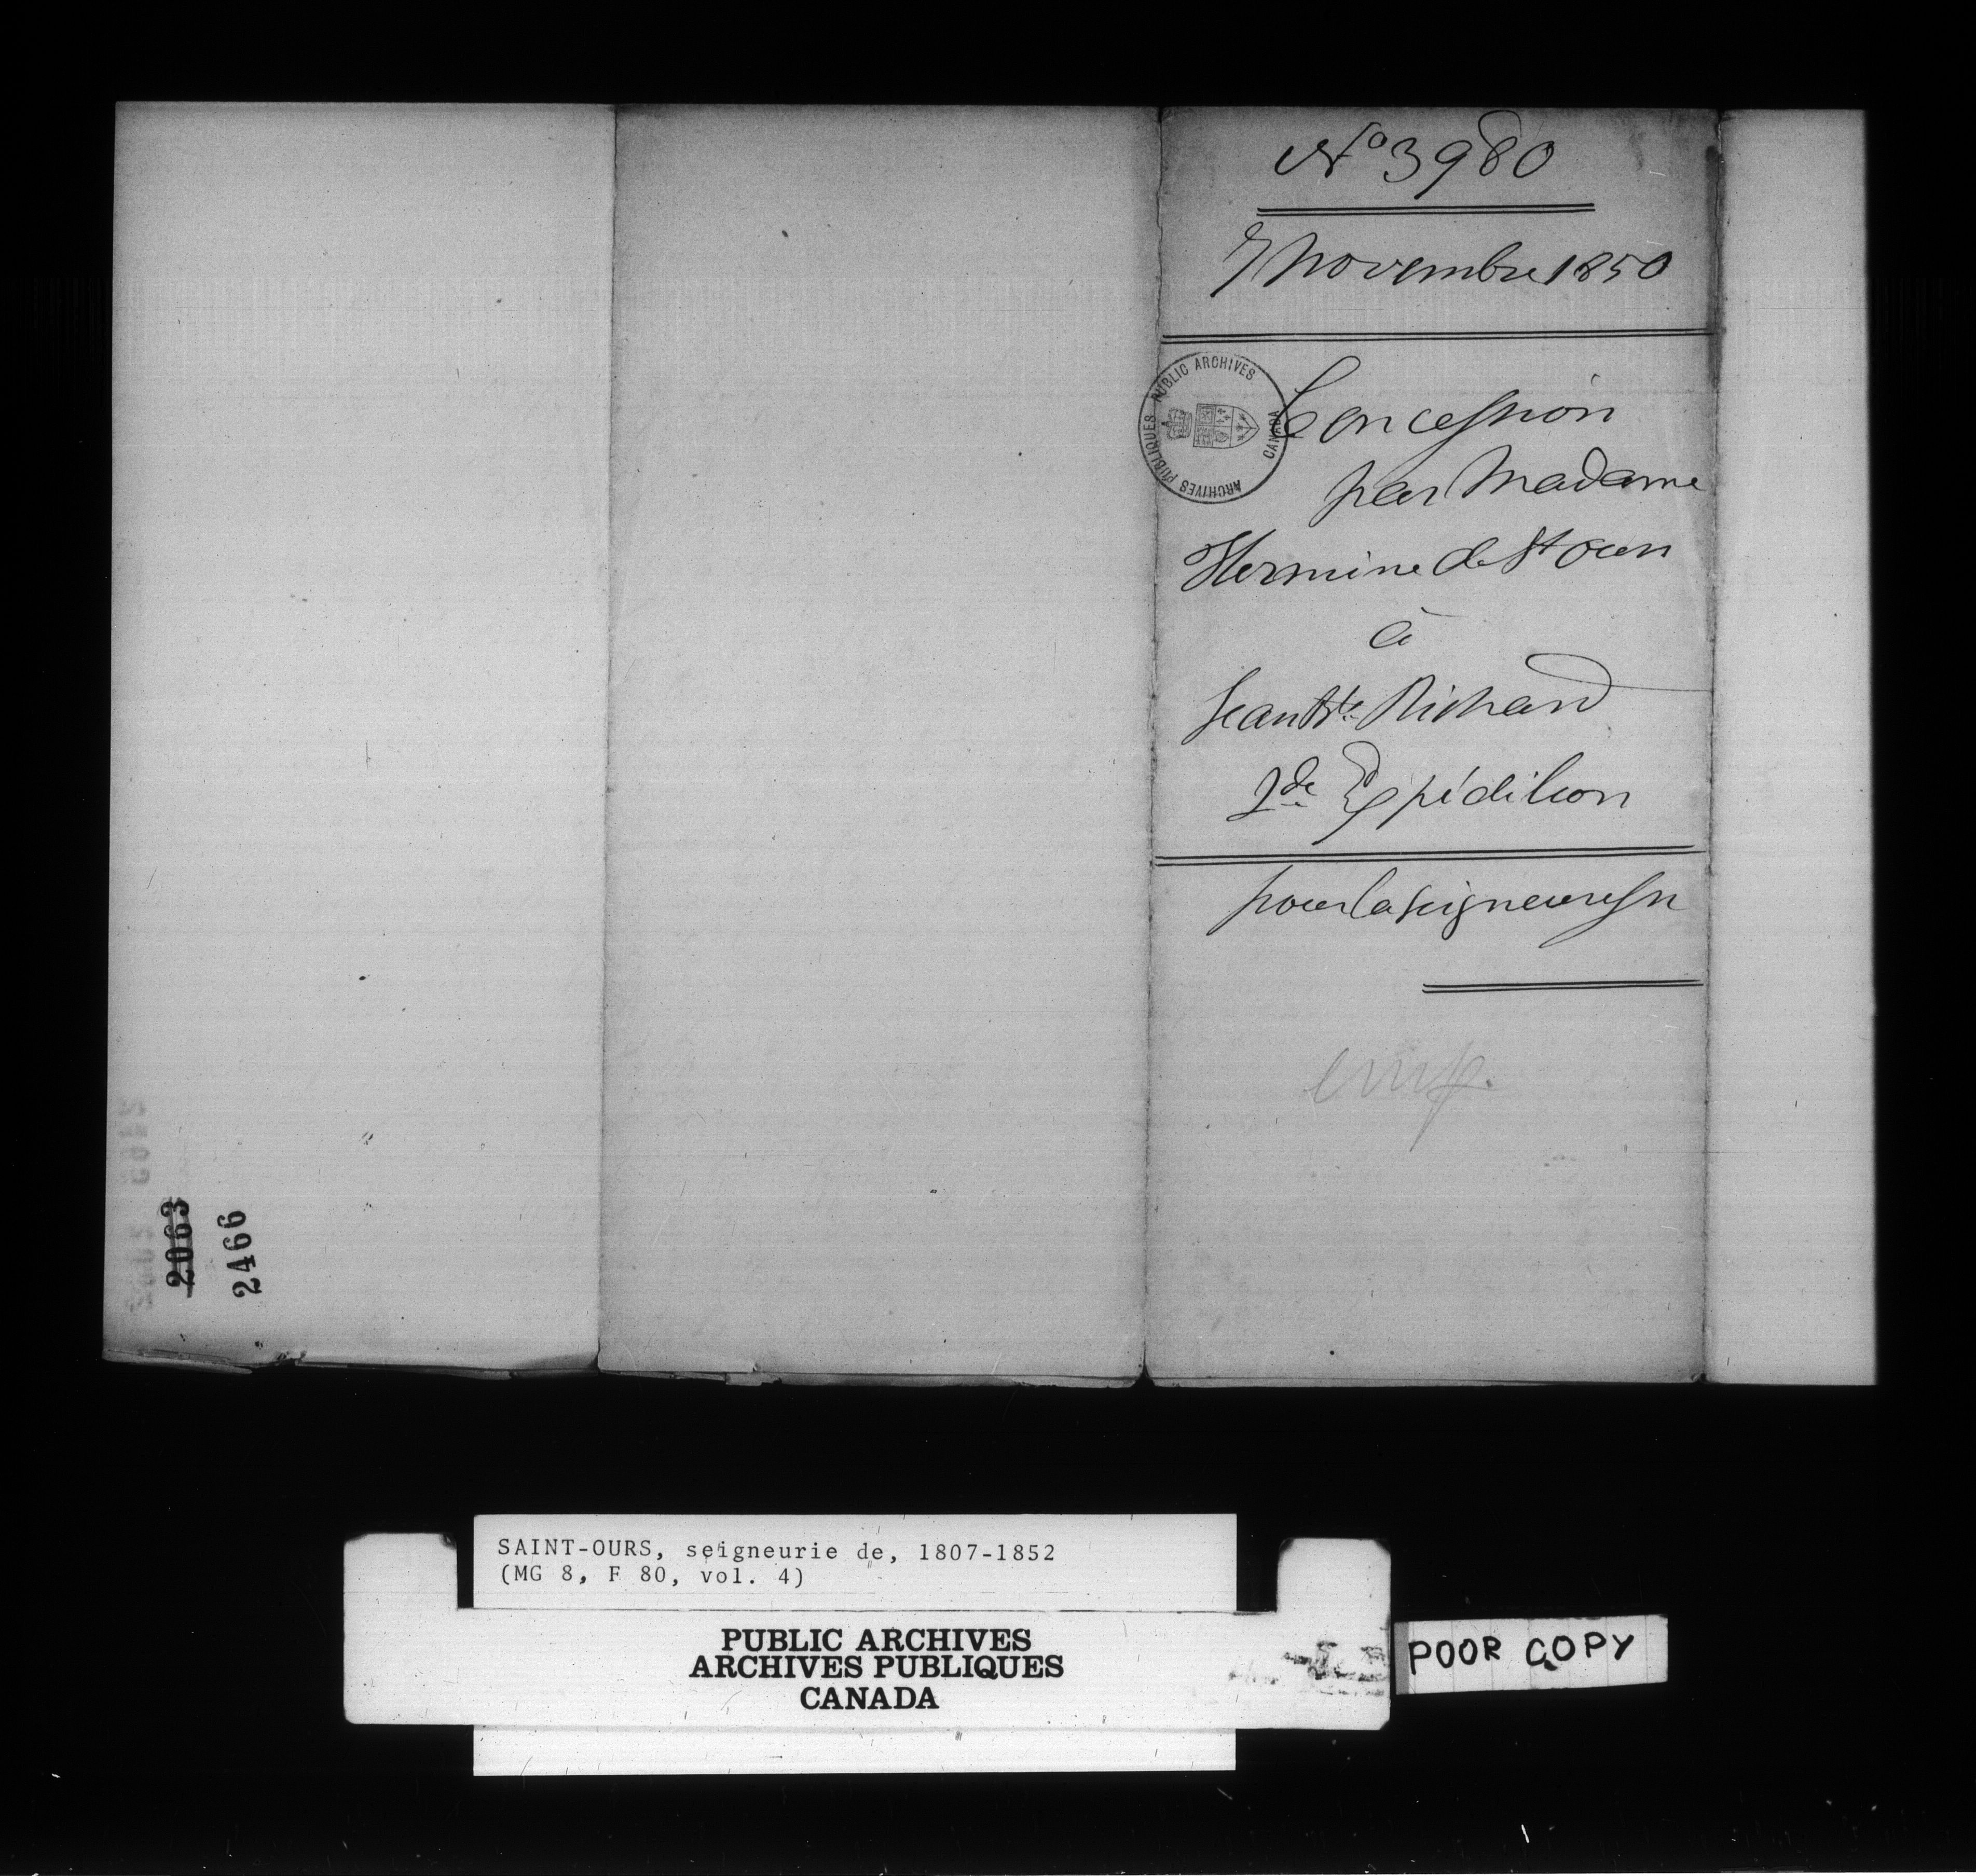 No 3980
7 Novembre 1850
PUBLIC ARCHIVES
ARCHIVES PUBLIQUES
CANADA
Concession
par Madame
Hermine de St Ours
à
Jean Bte Richard
2de Expédition
pour la Seigneuresse
2063
2466
SAINT-OURS, seigneurie de, 1807-1852
(MG 8, F 80, vol. 4)
PUBLIC ARCHIVES
ARCHIVES PUBLIQUES
CANADA
POOR COPY